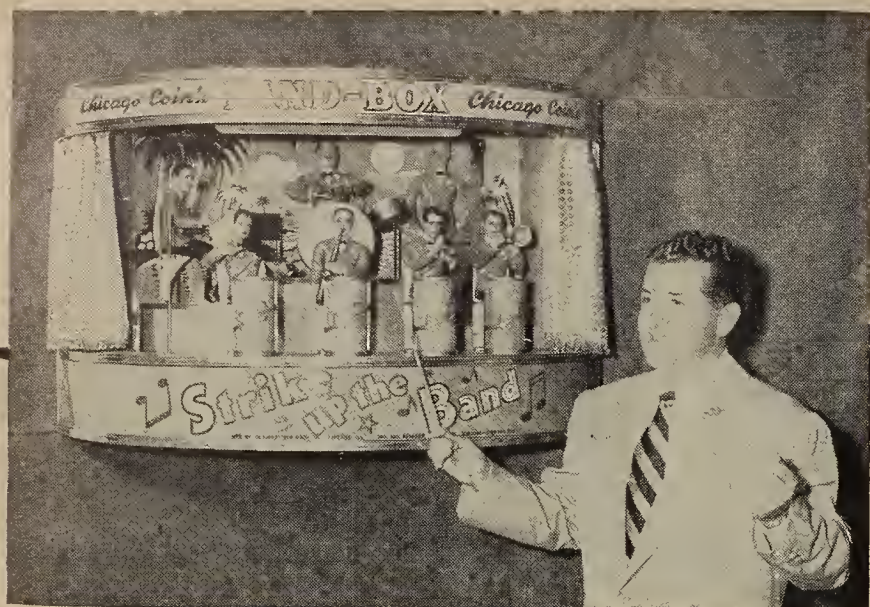 Chicago Coin's AND-BOX Chicago Coin's
Strike up the Band